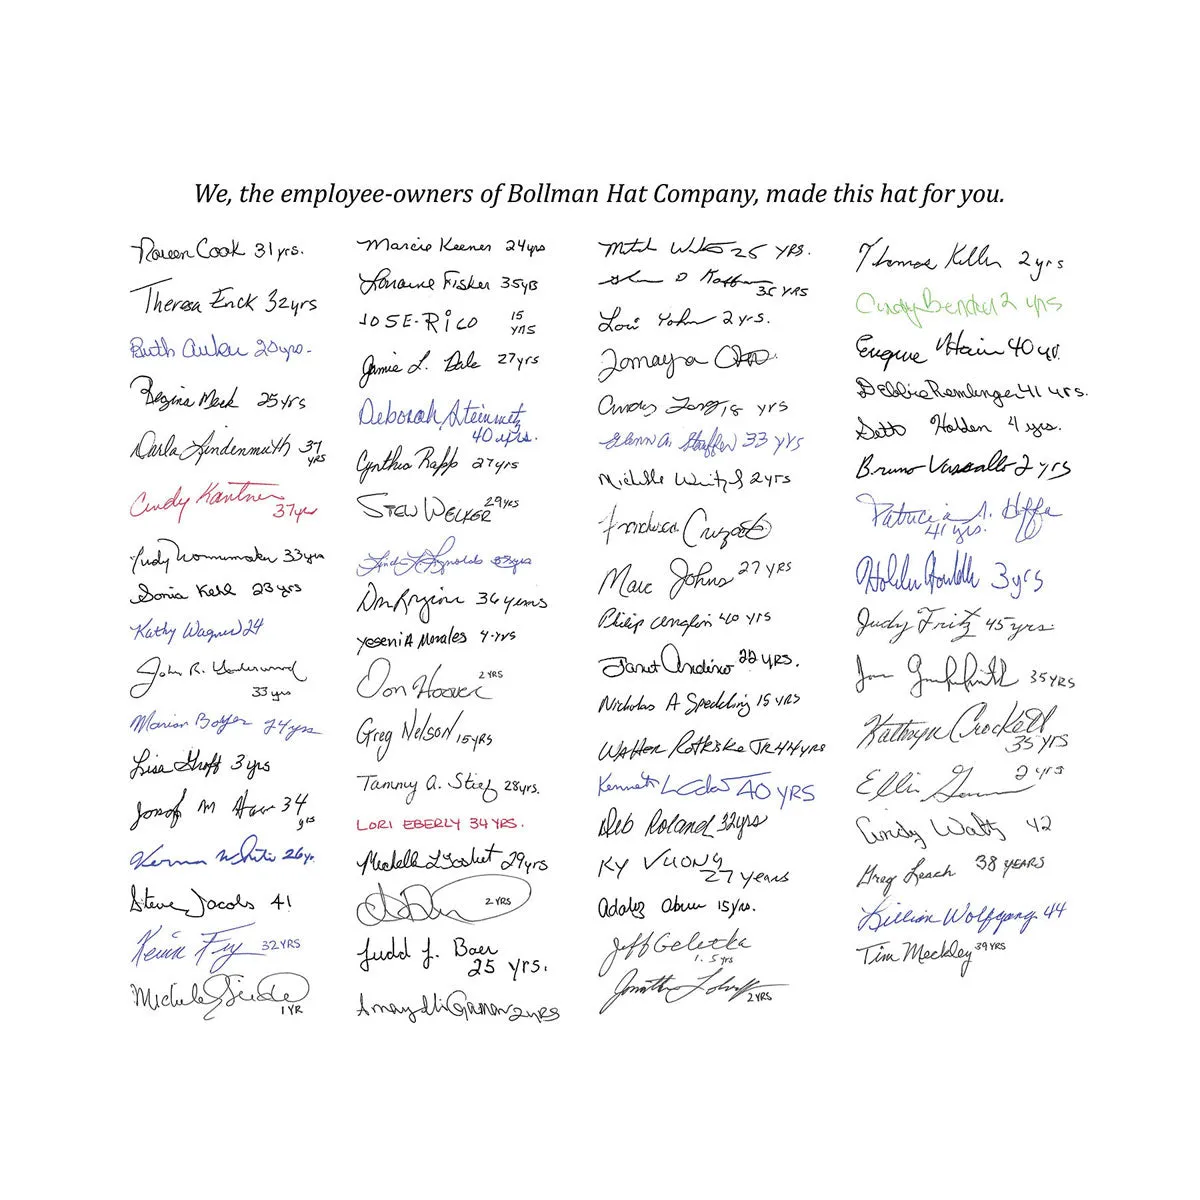 We, the employee-owners of Bollman Hat Company, made this hat for you.
Cook 31 yrs.
Theresa Enck 32 yrs
Ruth Auker yrs.
Regina Meck 25 yrs
Darla Lindenmuth 37
YRS
Cindy Kantner
37 yr
Judy 33 yrs
Sonia Kehl 23 yrs
Kathy Wagner 24
John R. Underwood
33 yrs
Marian Boyer 24 yrs
Lisa Groff 3 yrs
Josef M 34
yrs
26 yr.
Steve Jacobs 41
Kevin Fry 32 YRS
Michele
1 YR
Marcie Keener 24 yrs
Lorraine Fisher 35 yrs
JOSE-RiCO 15
yrs
Jamie L. Dale 27 yrs
Deborah Steinmetz
40 yrs.
Cynthia Rapp 27 yrs
STEW WELKER 29 YRS
Reynolds yrs
36 years
YeseniA Morales 4 yrs
Don Hoover 2 YRS
Greg NELSON 15 YRS
Tammy A. Stief 28 yrs.
LORI EBERLY 34 YRS.
Mechelle L 29 yrs
2 YRS
Judd J. Baer
25 yrs.
2 YRS
25 YRS.
D
35 YRS
Lori Yohn 2 yrs.
Tomayra
Cindy 18 yrs
Glenn A. Stauffer 33 yrs
Michelle 2 yrs
Francheska
Marc Johns 27 YRS
Philip 40 yrs
Janet Andino 22 YRS.
Nicholas A Speckling 15 YRS
Walter Rothiske JR 44 yrs
Kenneth 40 YRS
Deb Roland 32 yrs
KY VUONG
27 years
15 yrs.
Jeff Geletka
1.5 yrs
Jonathan
2 YRS
Thomas Keller 2 yrs
Cindy 2 yrs
Eugene Hain 40 yr.
Debbie Remlinger 41 yrs.
Seth Holden 4 yrs.
Bruno Vassallo 2 yrs
Patricia A. Hoffa
41 yrs.
3 yrs
Judy Fritz 45 yrs.
35 YRS
Kathryn Crockett
35 YRS
Ellis 2 yrs
Cindy Waltz 42
Greg Leach 38 YEARS
Lillian Wolfgang 44
Tim Meckley 39 YRS